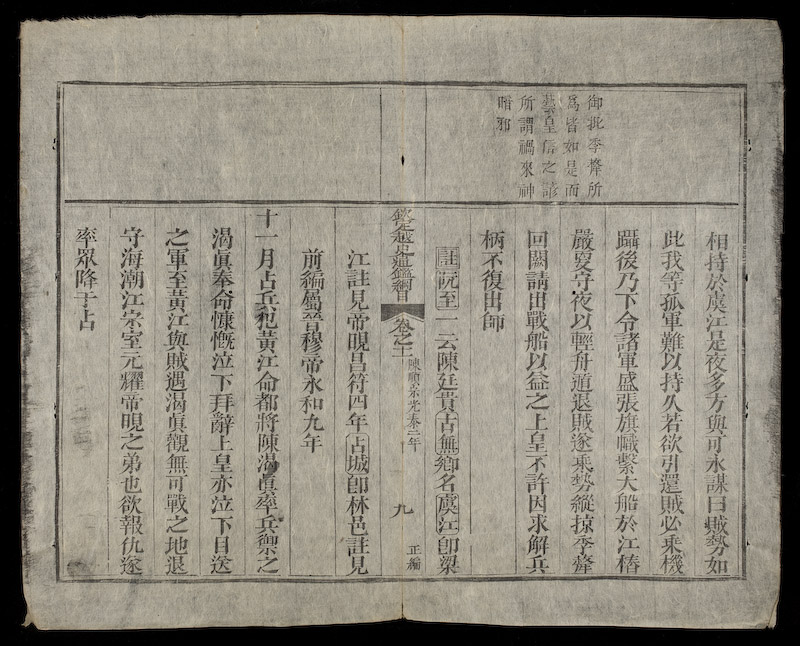 御批季犛所
爲皆如是而
藝皇信之諺
所謂禍來神
暗邪
相持於虞江是夜多方與可永謀曰賊勢如
此我等孤軍難以持久若欲引還賊必乘機
躡後乃下令諸軍盛張旗幟繫大船於江樁
嚴更守夜以輕舟遁退賊遂乘勢縱掠季犛
回闕請出戰船以益之上皇不許因求解兵
柄不復出師
註阮至一云陳廷貴古無鄉名虞江即梁
欽定越史通鑑綱目 卷之十一 陳順宗光泰二年 九 正編
江註見帝晛昌符四年占城即林邑註見
前編屬晉穆帝永和九年
十一月占兵犯黃江命都將陳渴眞率兵禦之
渴眞奉命慷慨泣下拜辭上皇亦泣下目送
之軍至黃江與賊遇渴眞觀無可戰之地退
守海潮江宗室元耀帝晛之弟也欲報仇遂
率眾降于占